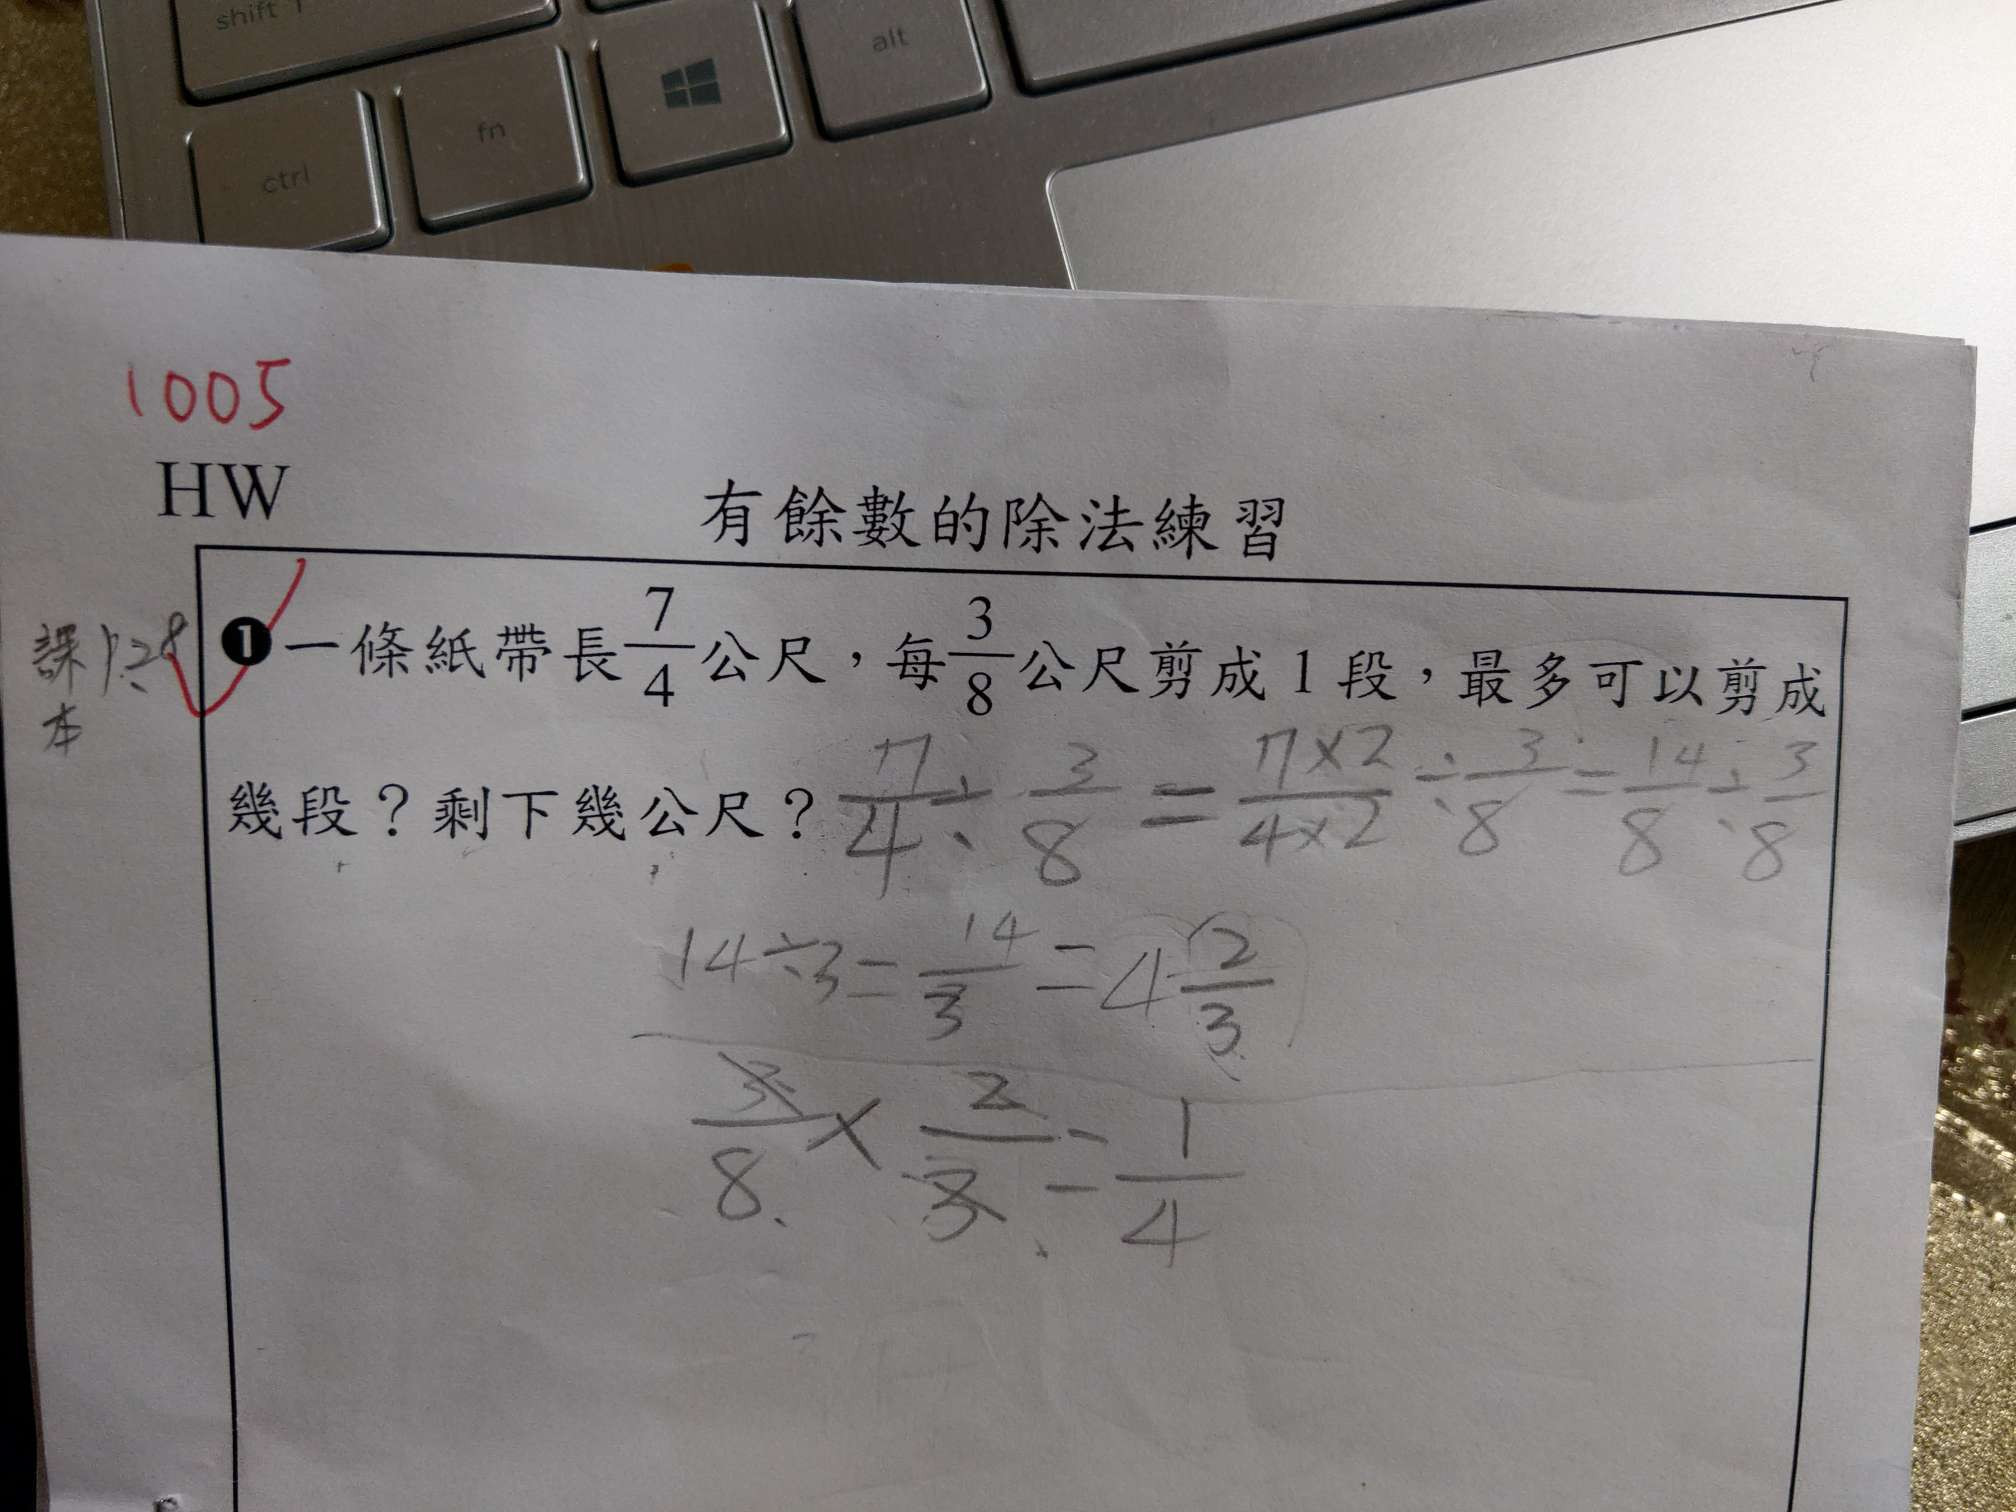 shift ↑
alt
fn
ctrl
1005
HW
有餘數的除法練習
課本 P.28
❶一條紙帶長7/4公尺，每3/8公尺剪成1段，最多可以剪成
幾段？剩下幾公尺？ 7/4 ÷ 3/8 = 7×2/4×2 ÷ 3/8 = 14/8 ÷ 3/8
14÷3 = 14/3 = 4 2/3
3/8 × 2/3 = 1/4